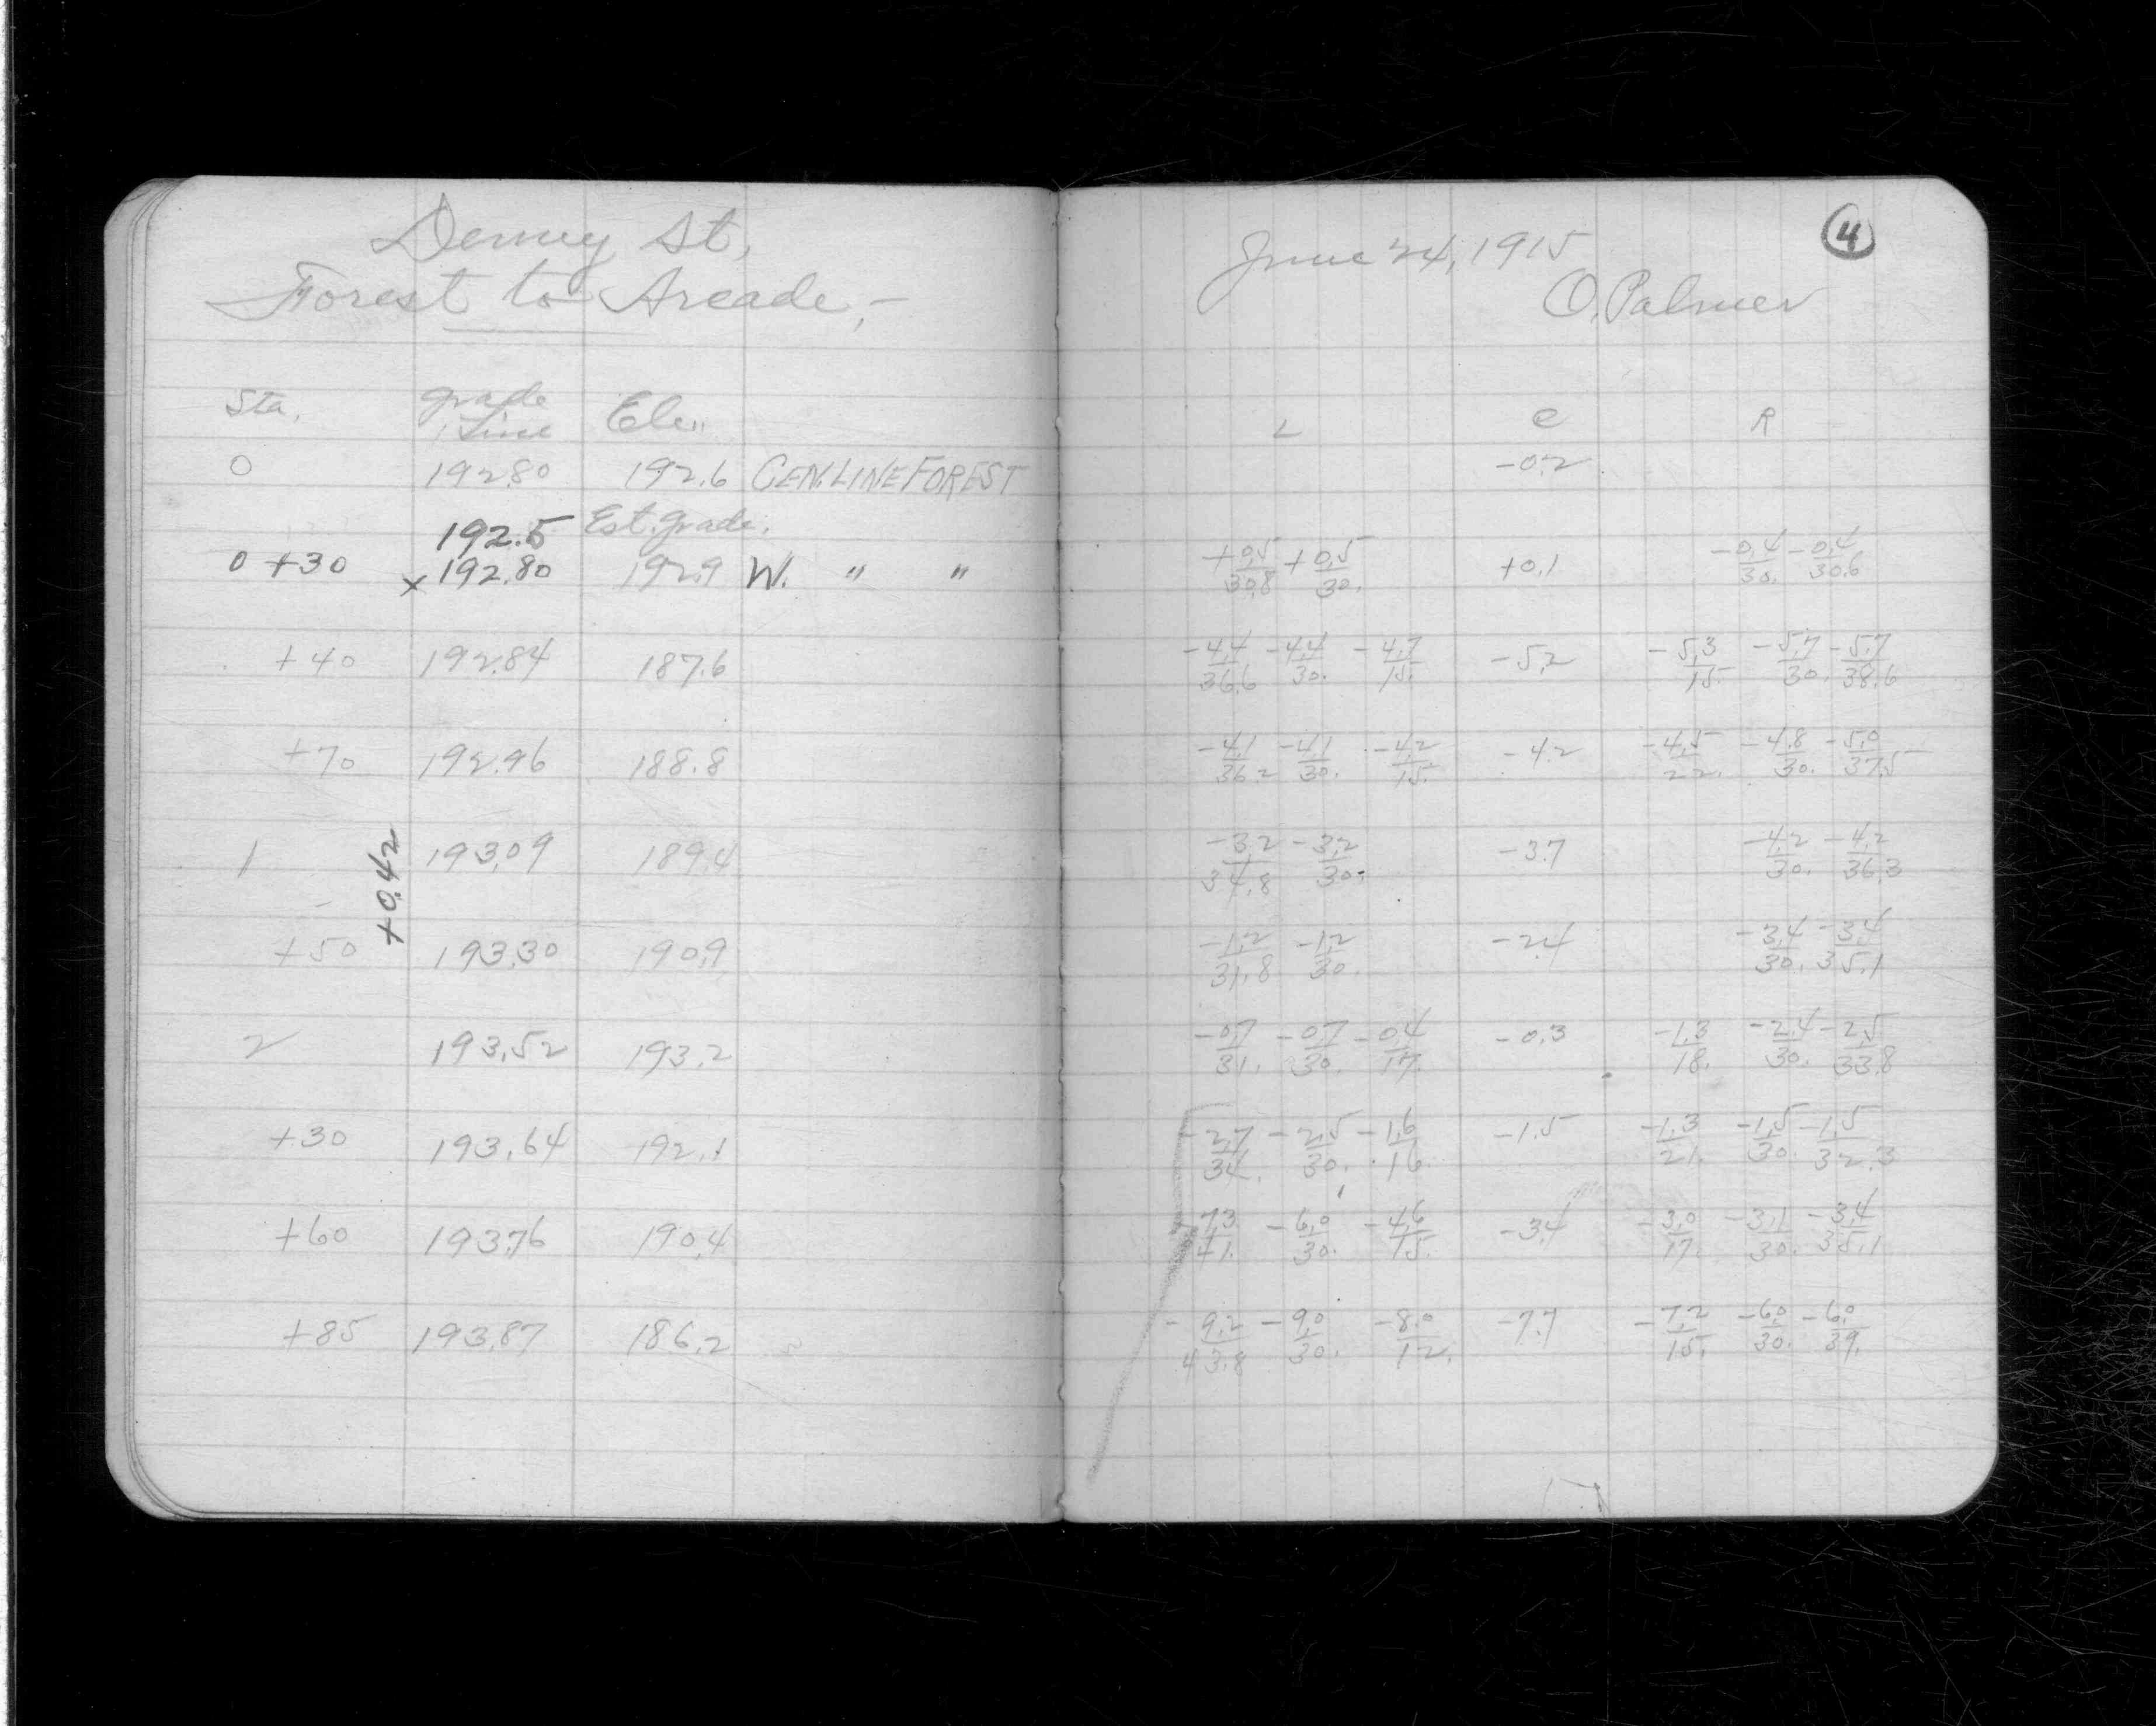 Denny St,
Forest to Arcade,-
Sta. Grade Line Ele.
0 192.80 192.6 CEN. LINE FOREST
192.5 Est. Grade.
0 +30 x 192.80 192.9 W. " "
+40 192.84 187.6
+70 192.96 188.8
1 193.09 189.4
+0.42
+50 193.30 190.9
2 193.52 193.2
+30 193.64 192.1
+60 193.76 190.4
+85 193.87 186.2
4
June 24, 1915
O. Palmer
L C R
-0.2
+0.5/30.8 +0.5/30. +0.1 -0.4/30. -0.4/30.6
-4.4/36.6 -4.4/30. -4.7/15. -5.2 -5.3/15. -5.7/30. -5.7/38.6
-4.1/36.2 -4.1/30. -4.2/15. -4.2 -4.5/22. -4.8/30. -5.0/37.5
-3.2/34.8 -3.2/30. -3.7 -4.2/30. -4.2/36.3
-1.2/31.8 -1.2/30. -2.4 -3.4/30. -3.4/35.1
-0.7/31. -0.7/30. -0.4/17. -0.3 -1.3/18. -2.4/30. -2.5/33.8
-2.7/34. -2.5/30. -1.6/16. -1.5 -1.3/21. -1.5/30. -1.5/32.3
-7.3/41. -6.0/30. -4.6/15. -3.4 -3.0/17. -3.1/30. -3.4/35.1
-9.2/43.8 -9.0/30. -8.0/12. -7.7 -7.2/15. -6.0/30. -6.0/39.